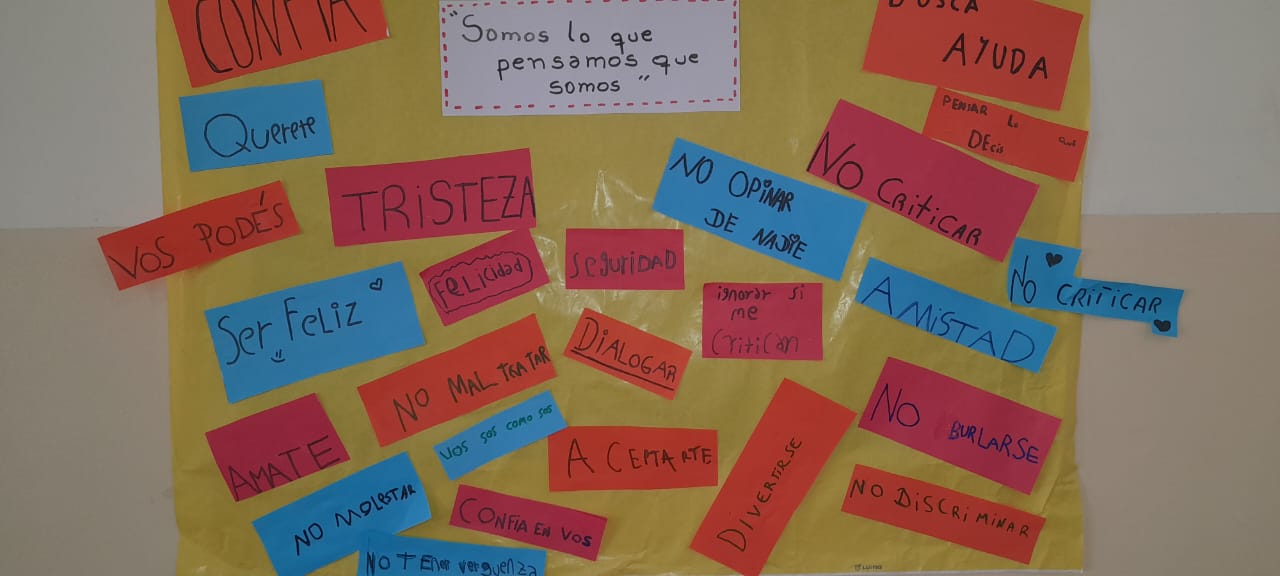 CONFIA
"Somos lo que
pensamos que
somos"
BUSCA
AYUDA
Querete
PENSAR lo que
DEcis
NO CritiCAR
NO OPiNAR
DE NADIE
TRiSTEZA
VOS PODÉS
FELiCidad
SEguriDAD
NO CRiTiCAR
Ser Feliz
ignorar si
me
Critican
AMiSTAD
DiALOGAR
NO MAL tRATAR
NO BURLARSE
AMATE
VOS SOS COMO SOS
ACEPTARTE
DiVERTiRSE
NO MOLESTAR
CONFIA EN VOS
NO DiSCRiMiNAR
NO TEner verguenza